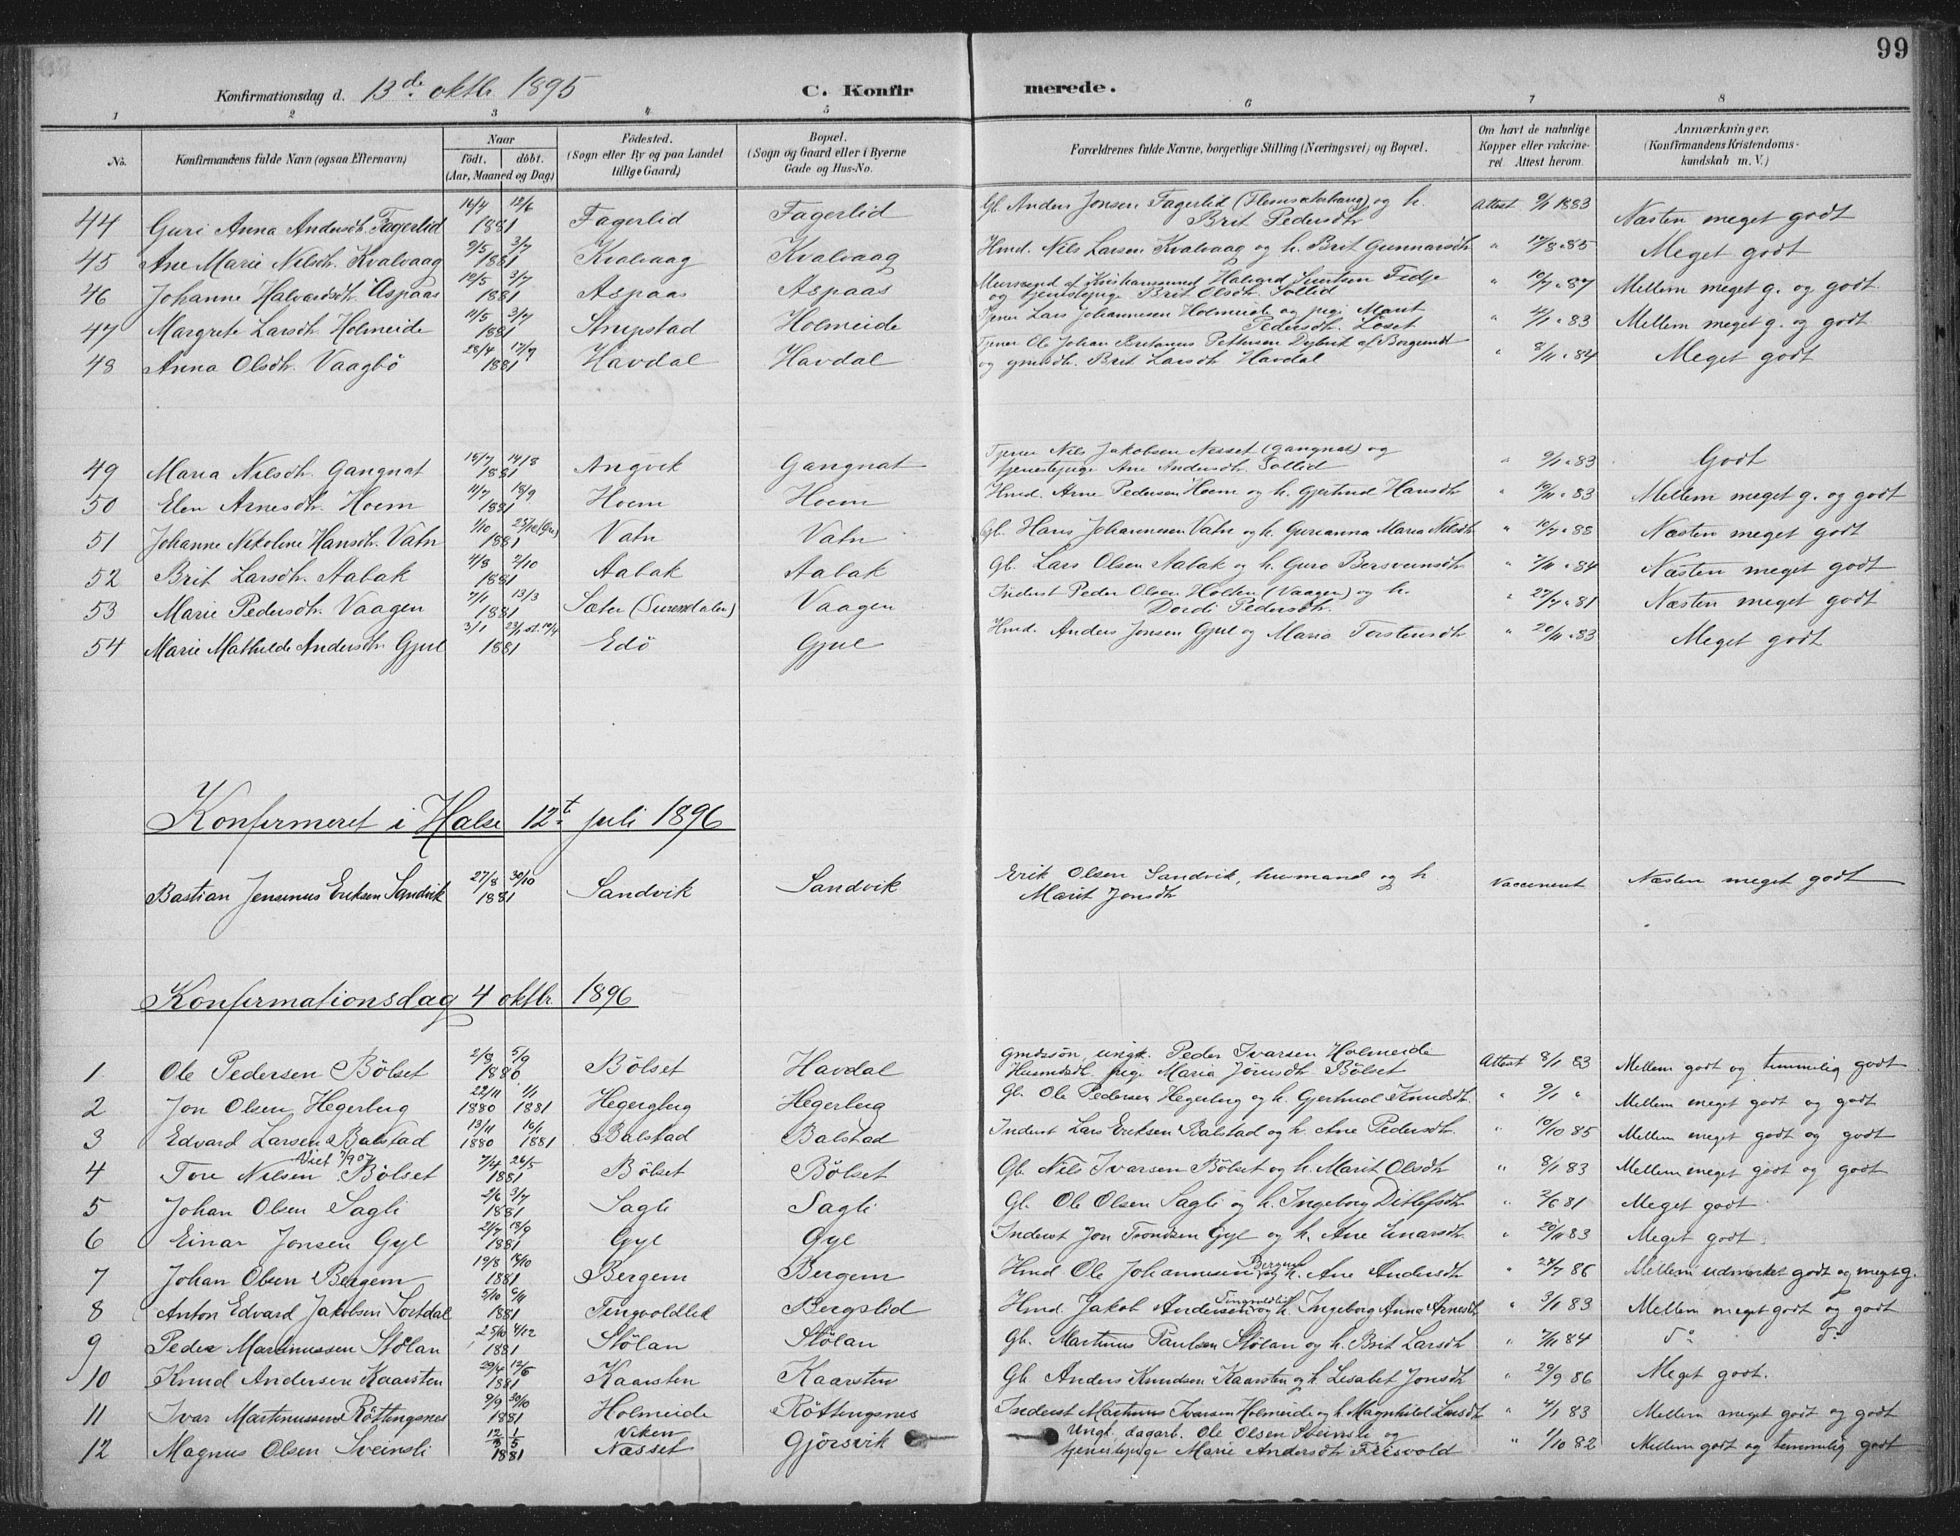 99
Konfirmationsdag d. 13de oktbr. 1895 C. Konfir merede.
1 2 3 4 5 6 7 8
No. Konfirmandens fulde Navn (ogsaa Efternavn) Naar födt. döbt. (Aar, Maaned og Dag) Födested. (Sogn eller By og paa Landet tillige Gaard) Bopæl. (Sogn og Gaard eller i Byerne Gade og Hus-No. Forældrenes fulde Navne, borgerlige Stilling (Næringsvei) og Bopæl. Om havt de naturlige Kopper eller vakcineret. Attest herom. Anmærkninger. (Konfirmandens Kristendomskundskab m. V.)
44 Guri Anna Andersdtr. Fagerlid 16/4 12/6 1881 Fagerlid Fagerlid Gb. Anders Jonsen Fagerlid og h. Brit Pedersdtr. Attest 9/1 1883 Næsten meget godt
45 Ane Marie Nilsdtr. Kvalvaag 9/5 3/7 1881 Kvalvaag Kvalvaag Hmd. Nils Larsen Kvalvaag og h. Brit Gunnarsdtr. " 12/8 " 85 Meget godt
46 Johanne Halvardsdtr. Aspaas 12/5 3/7 1881 Aspaas Aspaas og tjenestepige Brit Olsdtr. Sollid " 10/7 " 87 Mellem meget g. og godt
47 Margrete Larsdtr. Holmeide 11/5 3/7 1881 Stupstad Holmeide Tjener Lars Johannesen Holmeide og pige Marit Pedersdtr. Löset " 4/1 " 83 Mellem meget g. og godt
48 Anna Olsdtr. Vaagbö 28/4 17/9 1881 Havdal Havdal Tjener Ole Johan Pettersen Dybvik af Borgund og gmdsdtr. Brit Larsdtr. Havdal " 8/11 " 84 Meget godt
49 Maria Nilsdtr. Gangnat 18/7 14/8 1881 Angvik Gangnat Tjener Nils Jakobsen Nesset (Gangnat) og tjenestepige Ane Andersdtr. Sollid " 9/1 " 83 Godt
50 Elen Arnesdtr. Hoem 11/7 18/9 1881 Hoem Hoem Hmd. Arne Pedersen Hoem og h. Gjertrud Hansdtr " 10/11 " 83 Mellem meget g. og godt
51 Johanne Nikoline Hansdtr. Vatn 1/10 1881 Vatn Vatn Gb. Hans Johannesen Vatn og h. Gurianna Maria Nilsdtr " 10/7 " 88 Næsten meget godt
52 Brit Larsdtr. Aabak 4/8 2/10 1881 Aabak Aabak Gb. Lars Olsen Aabak og h. Guro Bersveinsdtr " 7/11 " 84 Næsten meget godt
53 Marie Pedersdtr. Vaagen 7/1 13/3 1881 Sæter (Surendalen) Vaagen Inderst Peder Olsen Holten (Vaagen) og h. Dordi Pedersdtr. " 27/7 " 81 Næsten meget godt
54 Marie Mathilde Andersdtr. Gjul 3/1 1881 Edö Gjul Hmd. Anders Jonsen Gjul og Maria Torstensdtr " 20/11 " 83 Meget godt
Konfirmeret i Halse 12t. juli 1896
Bastian Jensenus Eriksen Sandvik 27/8 30/10 1881 Sandvik Sandvik Erik Olsen Sandvik, husmand og h. Marit Jonsdtr Vaccineret Næsten meget godt
Konfirmationsdag 4 oktbr. 1896
1 Ole Pedersen Bölset 2/8 5/9 1880 Bölset Havdal Gmdssön, ungk. Peder Ivarsen Holmeide Husmdsdtr. pige Maria Jörnsdtr Bölset Attest 8/1 83 Mellem godt og temmelig godt
2 Jon Olsen Hegerberg 22/11 1/1 1880 1881 Hegergberg Hegerberg Gb. Ole Pedersen Hegerberg og h. Gjertrud Knudsdtr. " 9/1 " Mellem meget godt og godt
3 Edvard Larsen Balstad 13/11 16/1 1880 1881 Balstad Balstad Inderst Lars Eriksen Balstad og h. Ane Pedersdtr. " 10/10 85 Mellem meget godt og godt
4 Tore Nilsen Bölset Viet 7/907 7/4 26/5 1881 Bölset Bölset Gb. Nils Ivarsen Bölset og h. Marit Olsdtr " 8/1 83 Mellem meget godt og godt
5 Johan Olsen Sagli 2/6 3/7 1881 Sagli Sagli Gb. Ole Olsen Sagli og h. Ingeborg Ditlefsdtr " 2/6 81 Meget godt
6 Einar Jonsen Gyl 2/7 18/9 1881 Gyl Gyl Inderst Jon Trondsen Gyl og h. Ane Einarsdtr " 20/11 83 Meget godt
7 Johan Olsen Bergem 19/8 16/10 1881 Bergem Bergem Hmd. Ole Johannesen Bergem og h. Ane Andersdtr " 24/7 86 Mellem udmerket godt og meget g.
8 Anton Edvard Jakobsen Sortdal 5/10 6/11 1881 Tingvoldlid Bergslid Hmd. Jakob Andersen Tingvoldlid og h. Ingeborg Anna Arnesdtr " 3/1 83 Mellem meget godt og godt
9 Peder Martinussen Stölan 25/10 4/12 1881 Stölan Stölan Gb. Martinus Paulsen Stölan og h. Brit Larsdtr " 7/11 84 do do
10 Knud Andersen Kaarsten 29/4 12/6 1881 Kaarsten Kaarsten Gb. Anders Knudsen Kaarsten og h. Lisabet Jonsdtr " 29/9 86 Meget godt.
11 Ivar Martinussen Röttingsnes 9/9 30/10 1881 Holmeide Röttingsnes Inderst Martinus Ivarsen Holmeide og h. Magnhild Larsdtr " 4/1 83 Mellem meget godt og godt
12 Magnus Olsen Sveinsli 12/3 1/5 1881 Viken Næsset Gjörsvik Ungk. dagarb. Ole Olsen Steinsli og tjenestepige Marie Andersdtr Freisvold " 1/10 82 Mellem godt og temmelig godt